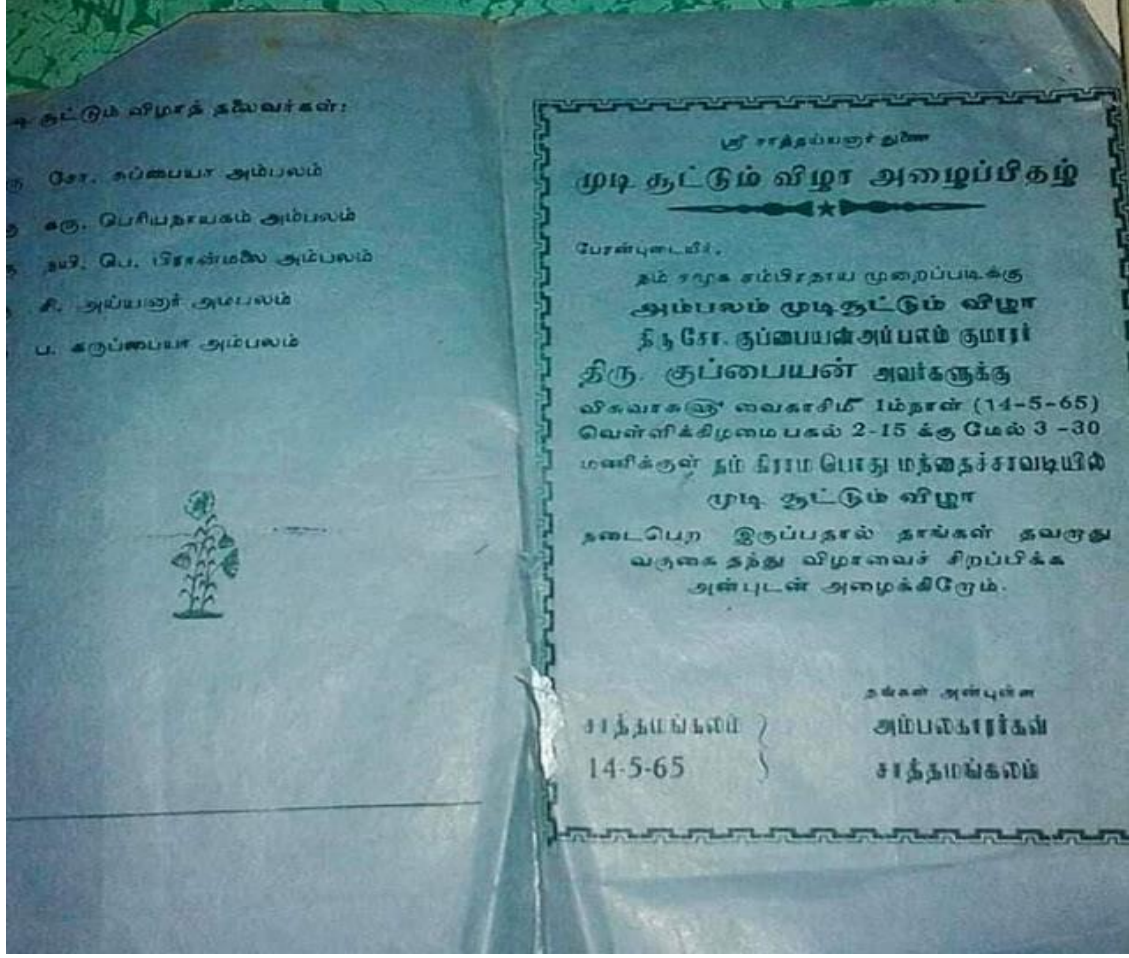 சூட்டும் விழாத் தலைவர்கள்:
சோ. சுப்பையா அம்பலம்
கரு. பெரியநாயகம் அம்பலம்
தயி. பெ. பிரான்மலை அம்பலம்
சி. அய்யனார் அம்பலம்
ப. கருப்பையா அம்பலம்
ஸ்ரீ சாத்தய்யனார் துணை
முடி சூட்டும் விழா அழைப்பிதழ்
பேரன்புடையீர்,
நம் சமூக சம்பிரதாய முறைப்படிக்கு
அம்பலம் முடிசூட்டும் விழா
திரு சோ. குப்பையன் அம்பலம் குமாரர்
திரு. குப்பையன் அவர்களுக்கு
விசுவாசு௵ வைகாசி௴ 1ம்நாள் (14-5-65)
வெள்ளிக்கிழமை பகல் 2-15 க்கு மேல் 3-30
மணிக்குள் நம் கிராம பொது மந்தைச்சாவடியில்
முடி சூட்டும் விழா
நடைபெற இருப்பதால் தாங்கள் தவறாது
வருகை தந்து விழாவைச் சிறப்பிக்க
அன்புடன் அழைக்கிறோம்.
தங்கள் அன்புள்ள
சாத்தமங்கலம் } அம்பலகாரர்கள்
14-5-65 சாத்தமங்கலம்